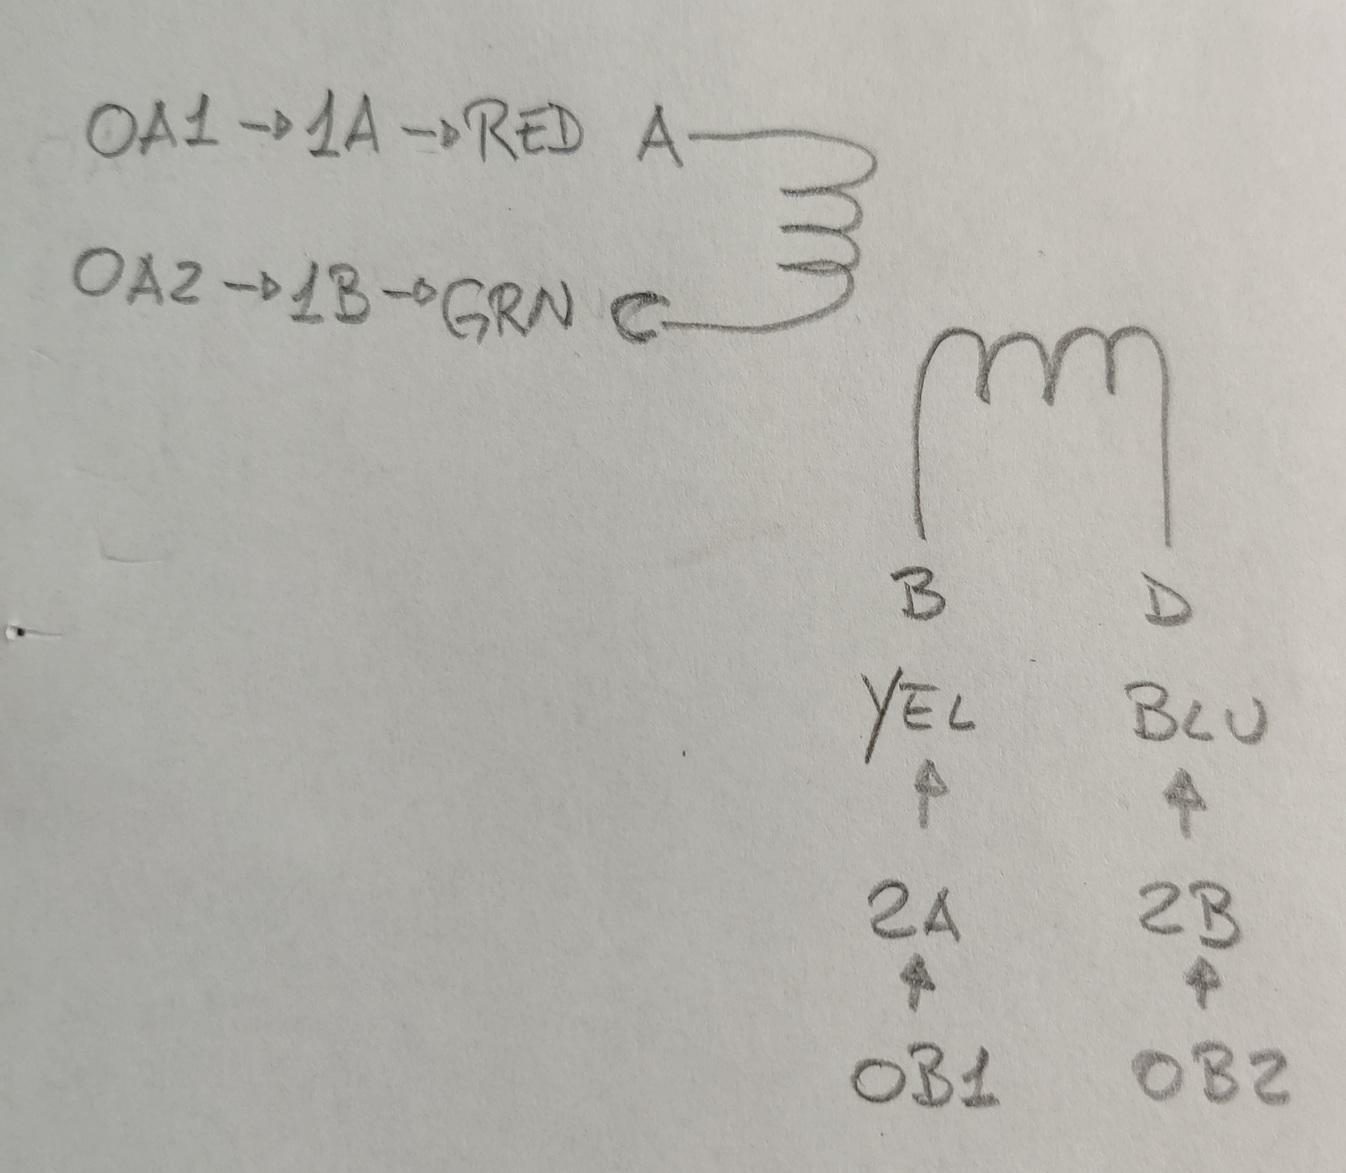 OA1 → 1A → RED A
OA2 → 1B → GRN C
B D
YEL BLU
↑ ↑
2A 2B
↑ ↑
OB1 OB2